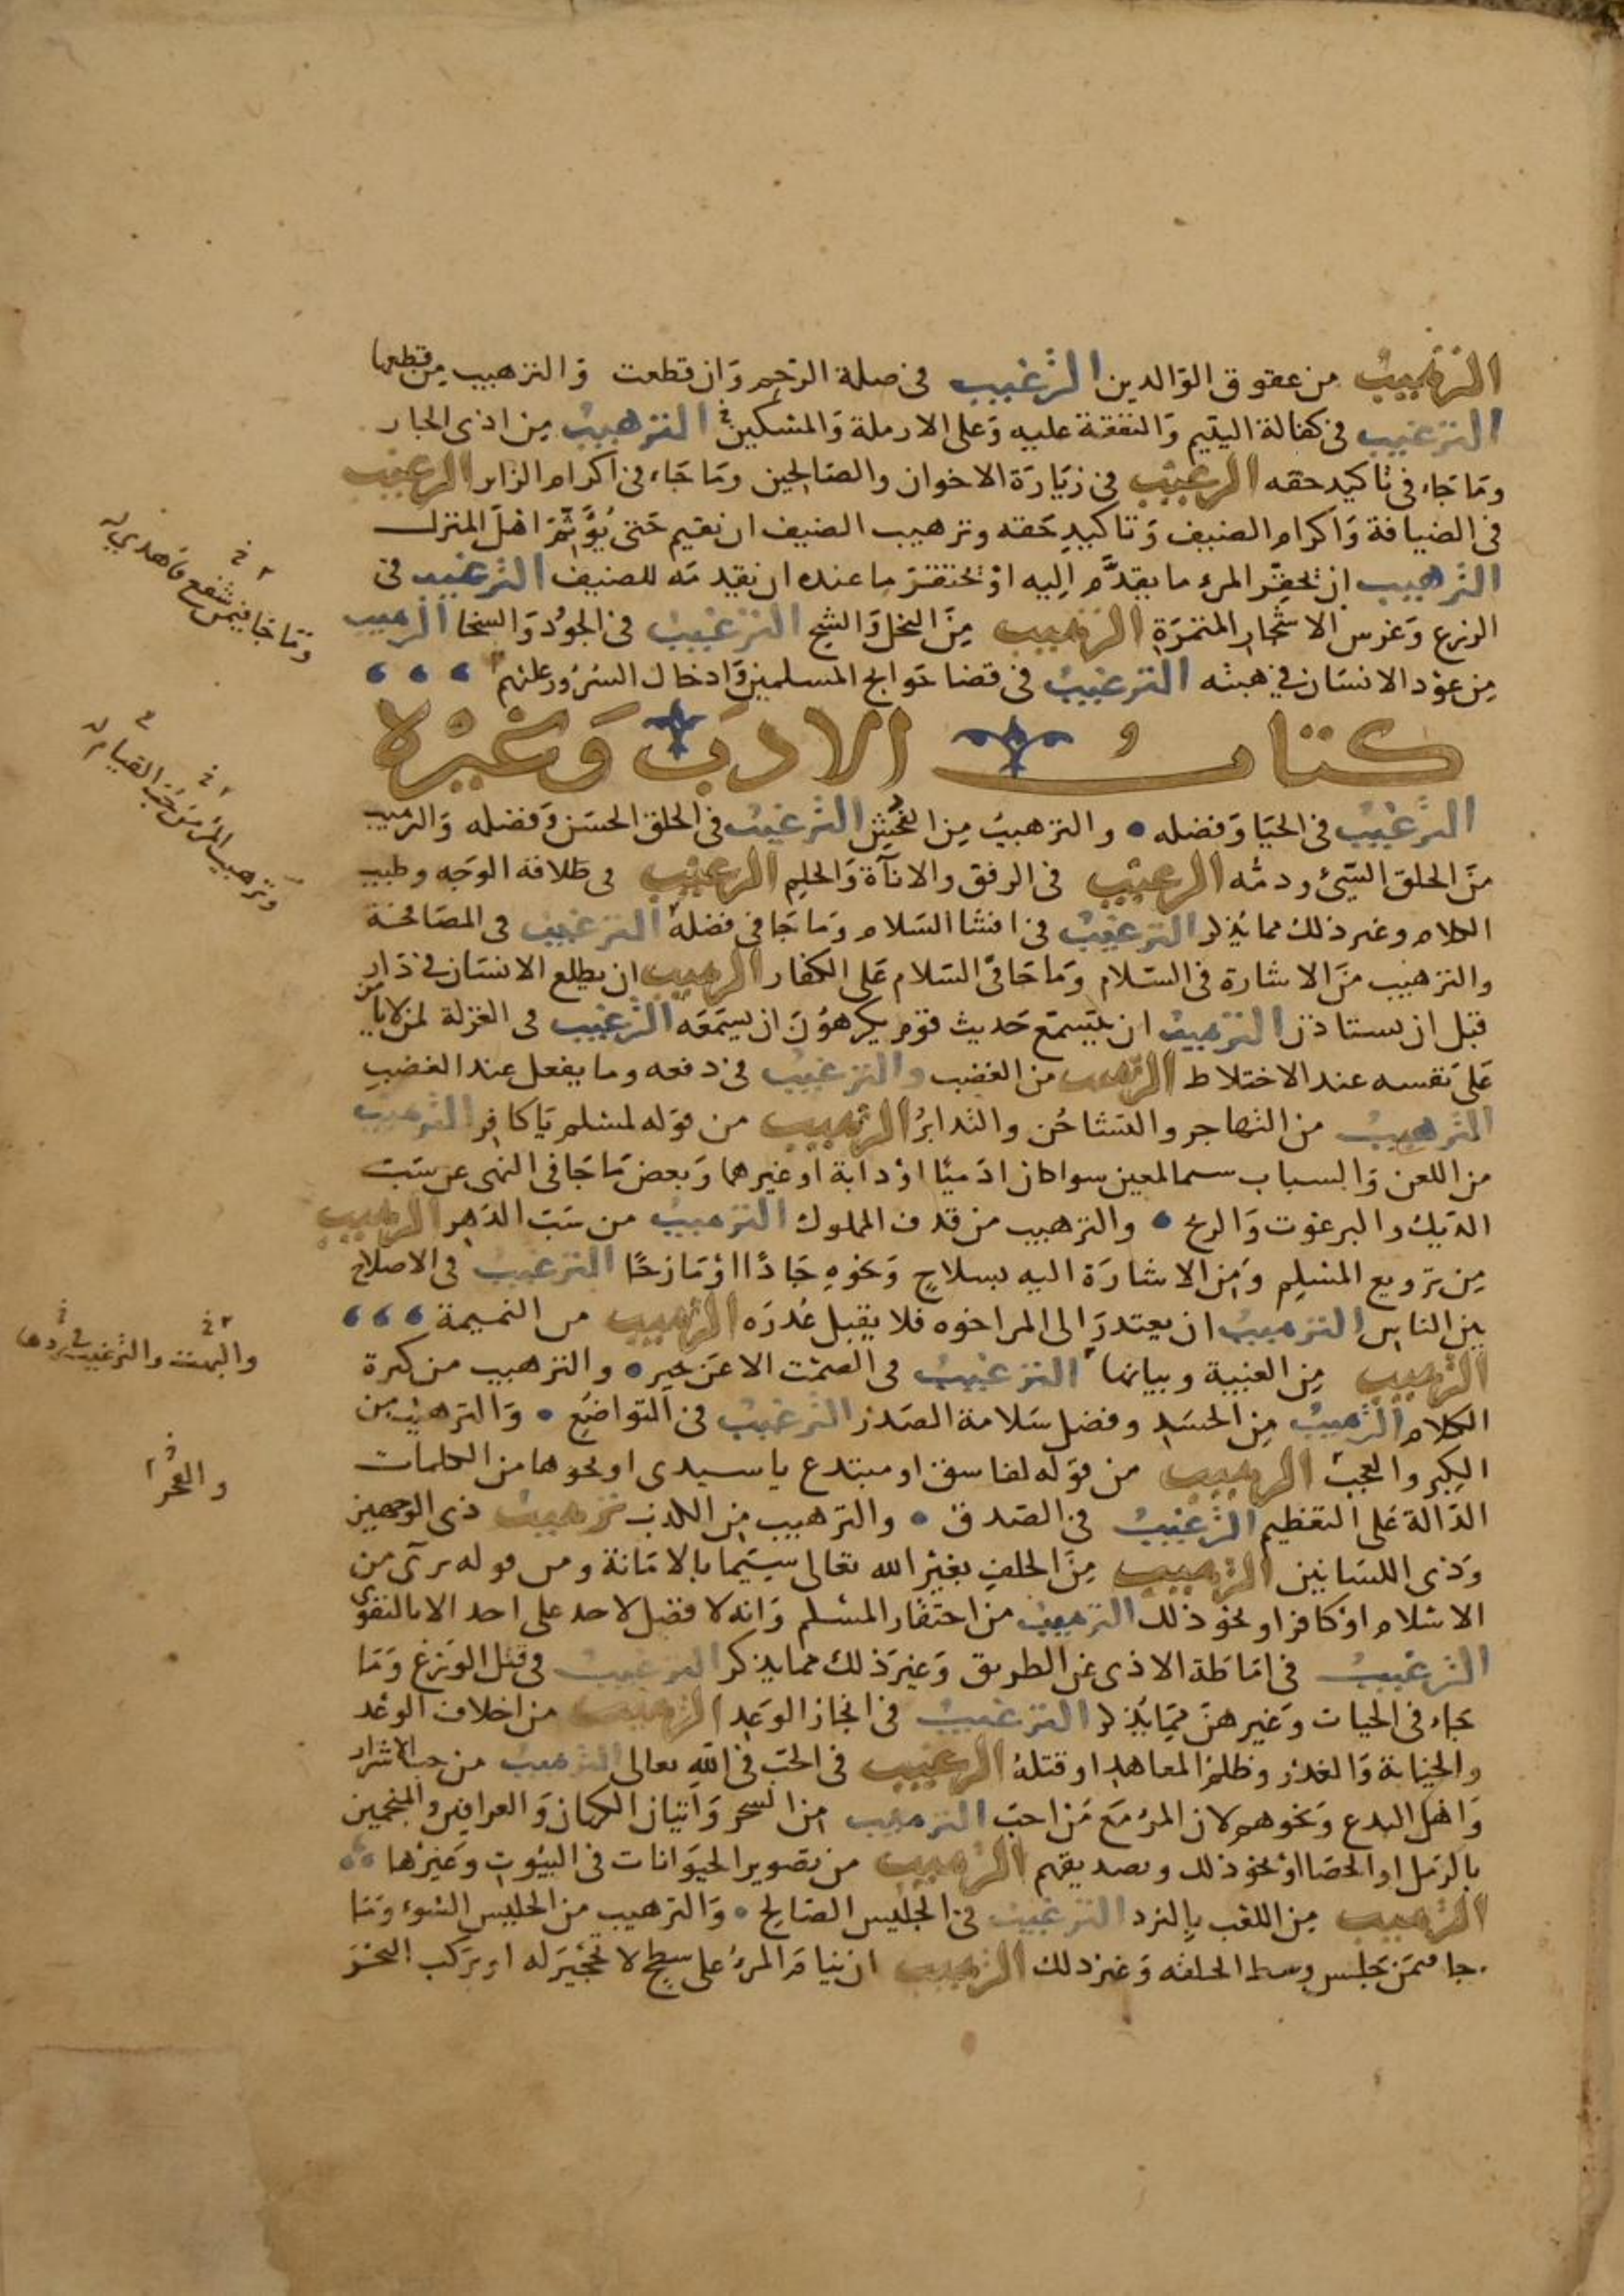 الترهيب من عقوق الوالدين الترغيب في صلة الرحم وان قطعت والترهيب من قطعها
الترغيب في كفالة اليتيم والنفقة عليه وعلى الارملة والمسكين الترهيب من اذى الجار
وما جاء في تاكيد حقه الترغيب في زيارة الاخوان والصالحين وما جاء في اكرام الزاير الترغيب
في الضيافة واكرام الضيف وتاكيد حقه وترهيب الضيف ان يقيم حتى يؤثم اهل المنزل
الترهيب ان يحقر المرء ما يقدم اليه او يحتقر ما عنده ان يقدمه للضيف الترغيب في
الزرع وغرس الاشجار المثمرة الترهيب من البخل والشح الترغيب في الجود والسخا الترهيب
من عود الانسان في هبته الترغيب في قضا حوايج المسلمين وادخال السرور عليهم
كتاب الادب وغيره
الترغيب في الحيا وفضله والترهيب من الفحش الترغيب في الخلق الحسن وفضله والترهيب
من الخلق السيئ وذمه الترغيب في الرفق والاناة والحلم الترغيب في طلاقة الوجه وطيب
الكلام وغير ذلك مما يذكر الترغيب في افشا السلام وما جا في فضله الترغيب في المصافحة
والترهيب من الاشارة في السلام وما جا في السلام على الكفار الترهيب ان يطلع الانسان في دار
قبل ان يستاذن الترهيب ان يتسمع حديث قوم يكرهون ان يسمعه الترغيب في العزلة لمن لا يامن
على نفسه عند الاختلاط الترهيب من الغضب والترغيب في دفعه وما يفعل عند الغضب
الترهيب من التهاجر والتشاحن والتدابر الترهيب من قوله لمسلم يا كافر الترهيب
من اللعن والسباب سيما لمعين سوا كان ادميا او دابة او غيرهما وبعض ما جا في النهي عن سب
الديك والبرغوث والريح والترهيب من قذف المملوك الترهيب من سب الدهر الترهيب
من ترويع المسلم ومن الاشارة اليه بسلاح ونحوه جادا او مازحا الترغيب في الاصلاح
بين الناس الترهيب ان يعتذر الى المرا خوه فلا يقبل عذره الترهيب من النميمة
الترهيب من الغيبة وبيانها الترغيب في الصمت الا عن خير والترهيب من كثرة
الكلام الترهيب من الحسد وفضل سلامة الصدر الترغيب في التواضع والترهيب من
الكبر والعجب الترهيب من قوله لفاسق او مبتدع يا سيدي او نحوها من الكلمات
الدالة على التعظيم الترغيب في الصدق والترهيب من الكذب ترهيب ذي الوجهين
وذي اللسانين الترهيب من الحلف بغير الله تعالى سيما بالامانة ومن قوله بريء من
الاسلام او كافر او نحو ذلك الترهيب من احتقار المسلم وانه لا فضل لاحد على احد الا بالتقوى
الترغيب في اماطة الاذى عن الطريق وغير ذلك مما يذكر الترغيب في قتل الوزغ وما
جاء في الحيات وغيرهن مما يذكر الترغيب في انجاز الوعد الترهيب من اخلاف الوعد
والخيانة والغدر وظلم المعاهد او قتله الترغيب في الحب في الله تعالى الترهيب من حب الاشرار
واهل البدع ونحوهم لان المرء مع من احب الترهيب من السحر واتيان الكهان والعرافين والمنجمين
بالرمل او الحصا او نحو ذلك وتصديقهم الترهيب من تصوير الحيوانات في البيوت وغيرها
الترهيب من اللعب بالنرد الترغيب في الجليس الصالح والترهيب من الجليس السوء وما
جا فيمن يجلس وسط الحلقه وغير ذلك الترهيب ان ينام المرء على سطح لا تحجير له او يركب البحر
وما جا فيمن شفع فاهدي
وترهيب المرء من حب القيام
والبهت والترغيب في ردها
والفخر